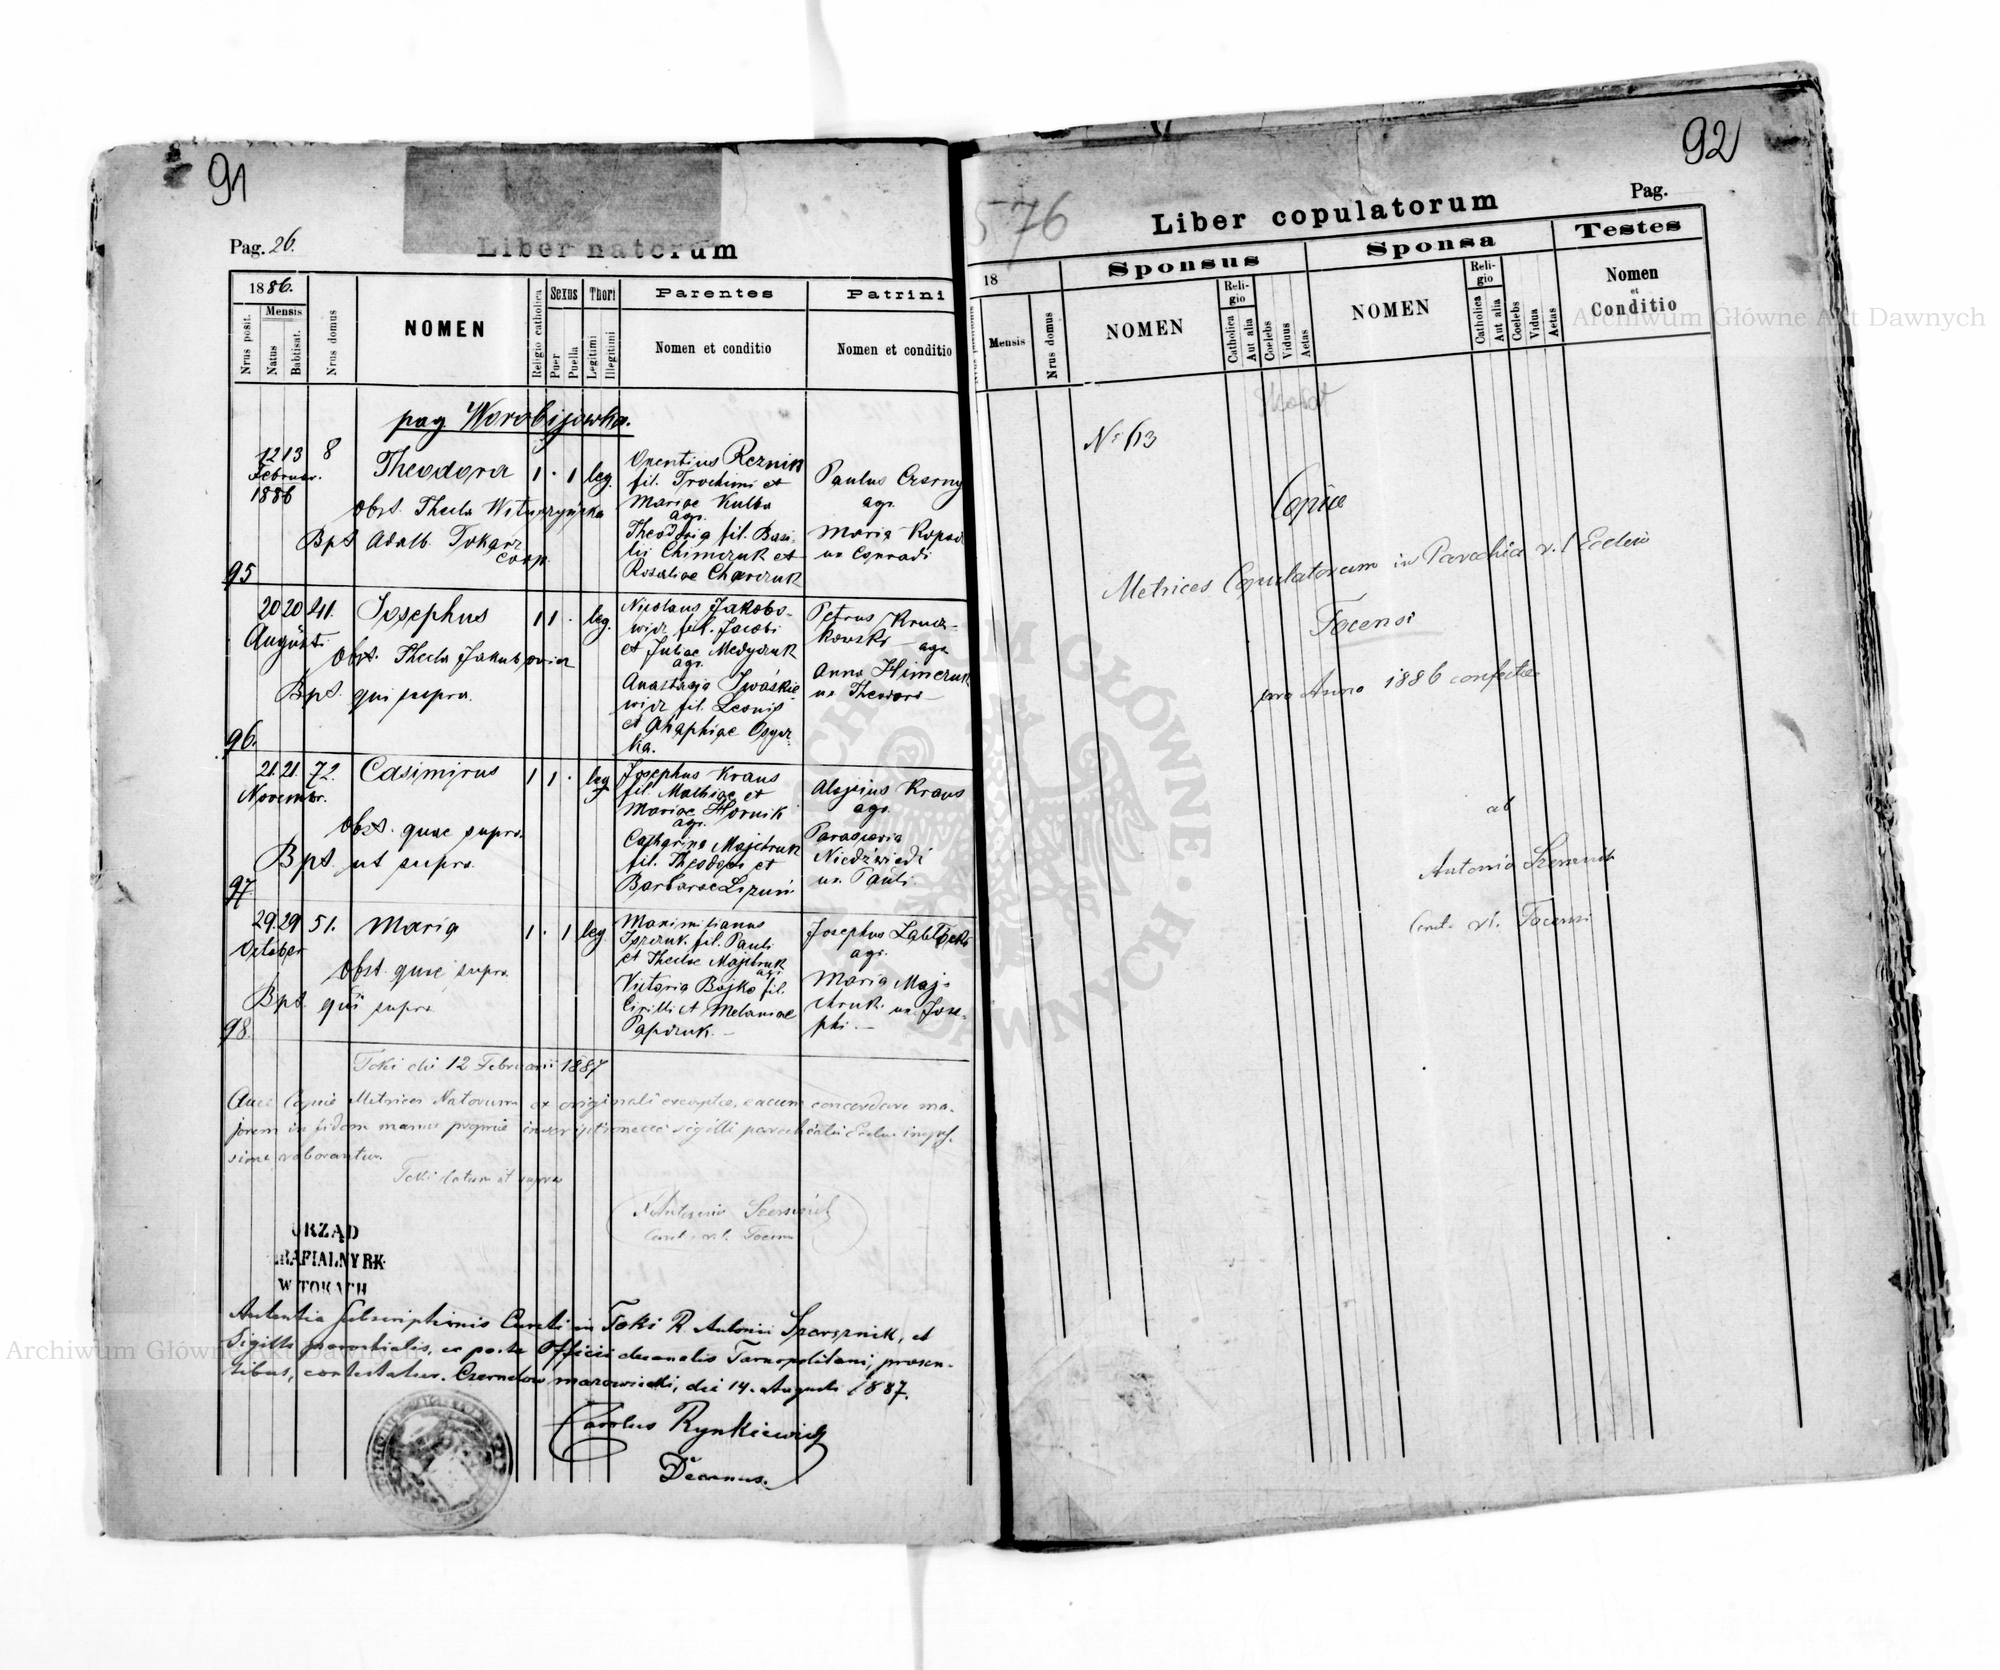 91
Pag. 26.
Liber natorum
1886.
Nrus posit.
Mensis
Natus
Babtisat.
Nrus domus
NOMEN
Religio catholica
Sexus
Puer
Puella
Thori
Legitimi
Illegitimi
Parentes
Nomen et conditio
Patrini
Nomen et conditio
pag Worobijowka.
12 13 8
Februar.
1886
Theodora 1 . 1 leg.
Obst. Thecla
Bpt Adalb. Tokarz
coop.
95
Onentius Reznik
fil. Trochimi et
Mariae Kulba
agr.
Theodosia fil. Basi-
lii Chimczuk et
Rosaliae Charczuk
Paulus Czorny
agr.
Maria
ux Conradi
20 20 41.
Augusti
Josephus 1 1 . leg.
Obst. Thecla Jakubowicz
Bpt. qui supra.
96.
Nicolaus Jakobo-
wicz fil. Jacobi
et Juliae Medyczuk
agr.
Anastasia Iwaśkie
wicz fil. Leonis
et Ahaphiae
ka.
Petrus Krucz-
kowski agr.
Anna Himczuk
ux Theodori
21. 21. 72.
Novembr.
Casimirus 1 1 . leg
Obst. quae supra.
Bpt. ut supra.
97
Josephus Kraus
fil. Mathiae et
Mariae Hornik
agr.
Catharina Majchruk
fil. Theodori et
Barbarae
Aloysius Kraus
agr.
Parascevia
Niedźwiedź
ux. Pauli.
29. 29 51.
October
Maria 1 . 1 leg
Obst. quae supra.
Bpt. qui supra
98.
Maximilianus
fil. Pauli
et Theclae Majchruk
agr.
Victoria Bojko fil.
Cirilli et Melaniae
Papczuk.
Josephus
agr.
Maria Maj-
chruk. ux. Jose-
phi.
Toki die 12 Februarii 1887
Copiae Metrices Natorum ex originali excepta, eacum concordare ma-
jorem in fidem manus propriae inscriptione ac sigilli parochialis Eccles impres-
sione roborantur.
Toki datum ut supra
Antonius
Curat. r. l. Tocensi
URZĄD
PARAFIALNY RK
W TOKACH
Autentia subscriptionis Curati in Toki R. Antonii, et
Sigilli parochialis, ex parte Officii decanalis Tarnopolitani, praesen-
tibus, contestatur. Czernelow mazowiecki, die 14. Augusti 1887.
Carolus Rynkiewicz
Decanus.
92
576
Pag.
Liber copulatorum
18
Mensis
Nrus domus
Sponsus
NOMEN
Reli-
gio
Catholica
Aut alia
Coelebs
Viduus
Aetas
Sponsa
NOMEN
Reli-
gio
Catholica
Aut alia
Coelebs
Vidua
Aetas
Testes
Nomen
et
Conditio
Nr 63
Copia
Metrices Copulatorum in Parochia r. l Eccles
Tocensi
pro Anno 1886 confecta
ab
Antonio
Curat. r. l. Tocensi
Archiwum Główne Akt Dawnych
Archiwum Główne Akt Dawnych
ARCHIWUM GŁÓWNE AKT DAWNYCH